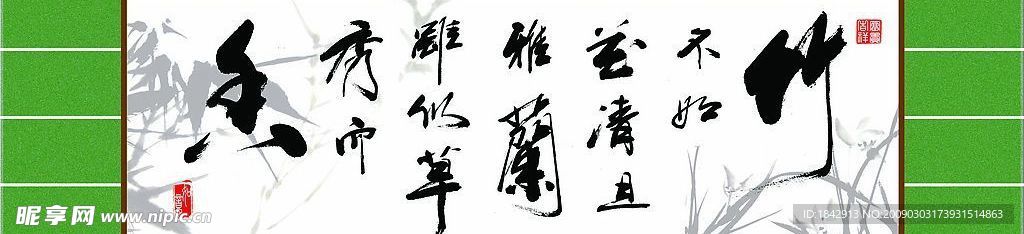 竹
不如
並清且
雅蘭
雖似草
秀而
香
昵享网 www.nipic.cn
ID:1842913 NO:20090303173931514863